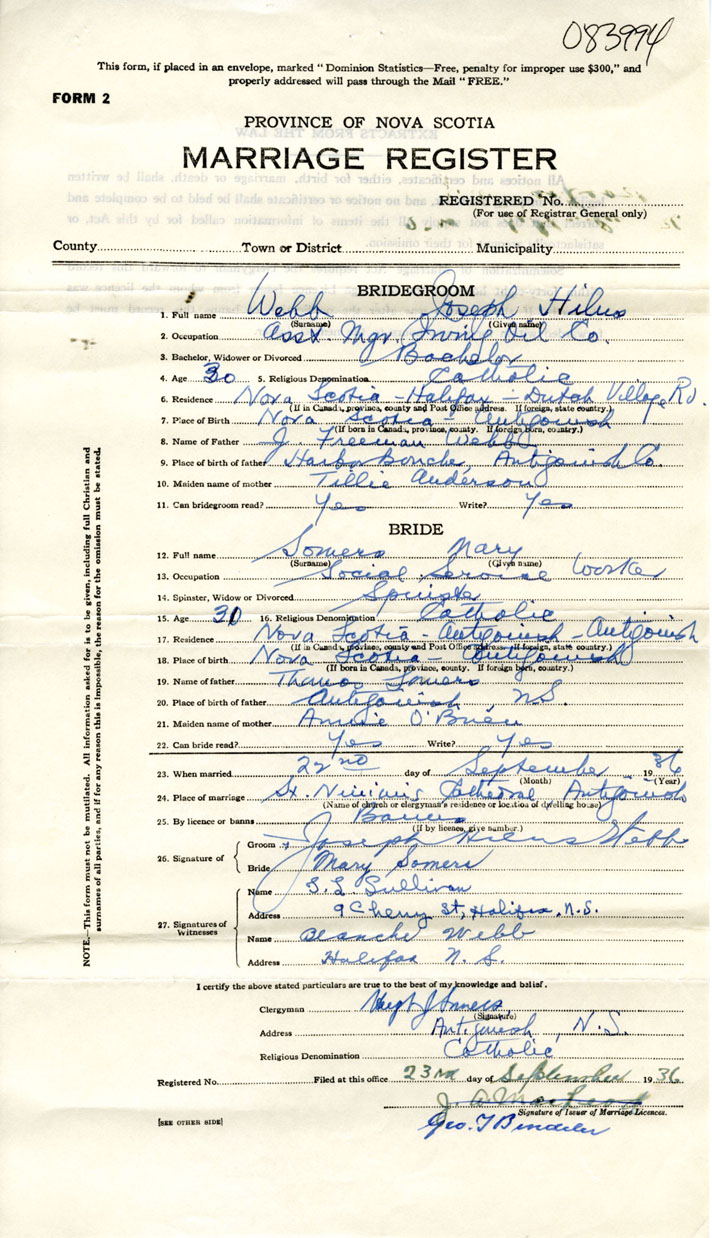 083994
This form, if placed in an envelope, marked "Dominion Statistics—Free, penalty for improper use $300," and
properly addressed will pass through the Mail "FREE."
FORM 2
PROVINCE OF NOVA SCOTIA
MARRIAGE REGISTER
REGISTERED No.
(For use of Registrar General only)
County Town or District Municipality
BRIDEGROOM
1. Full name Webb Joseph Hilus
(Surname) (Given name)
2. Occupation Asst. Mgr. Irving Oil Co.
3. Bachelor, Widower or Divorced Bachelor
4. Age 30 5. Religious Denomination Catholic
6. Residence Nova Scotia - Halifax - Dutch Village Rd.
(If in Canada, province, county and Post Office address. If foreign, state country.)
7. Place of Birth Nova Scotia - Antigonish
(If born in Canada, province, county. If foreign born, country.)
8. Name of Father J. Freeman Webb
9. Place of birth of father Harbor Bouche, Antigonish Co.
10. Maiden name of mother Tillie Anderson
11. Can bridegroom read? Yes Write? Yes
BRIDE
12. Full name Somers Mary
(Surname) (Given name)
13. Occupation Social Service Worker
14. Spinster, Widow or Divorced Spinster
15. Age 30 16. Religious Denomination Catholic
17. Residence Nova Scotia - Antigonish - Antigonish
(If in Canada, province, county and Post Office address. If foreign, state country.)
18. Place of birth Nova Scotia - Antigonish
(If born in Canada, province, county. If foreign born, country.)
19. Name of father Thomas Somers
20. Place of birth of father Antigonish, N.S.
21. Maiden name of mother O'Brien
22. Can bride read? Yes Write? Yes
23. When married 22nd day of September 1936
(Month) (Year)
24. Place of marriage St. Ninian's Cathedral Antigonish
(Name of church or clergyman's residence or location of dwelling house)
25. By licence or banns Banns
(If by licence, give number.)
26. Signature of
Groom Joseph Hilus Webb
Bride Mary Somers
27. Signatures of Witnesses
Name S. L. Sullivan
Address 9 Cherry St, Halifax, N.S.
Name Blanche Webb
Address Halifax N. S.
I certify the above stated particulars are true to the best of my knowledge and belief.
Clergyman Hugh J Somers
(Signature)
Address Antigonish, N.S.
Religious Denomination Catholic
Registered No. Filed at this office 23rd day of September 1936
J. A.
Signature of Issuer of Marriage Licences.
Geo. T
[SEE OTHER SIDE]
NOTE.—This form must not be mutilated. All information asked for is to be given, including full Christian and
surnames of all parties, and if for any reason this is impossible, the reason for the omission must be stated.